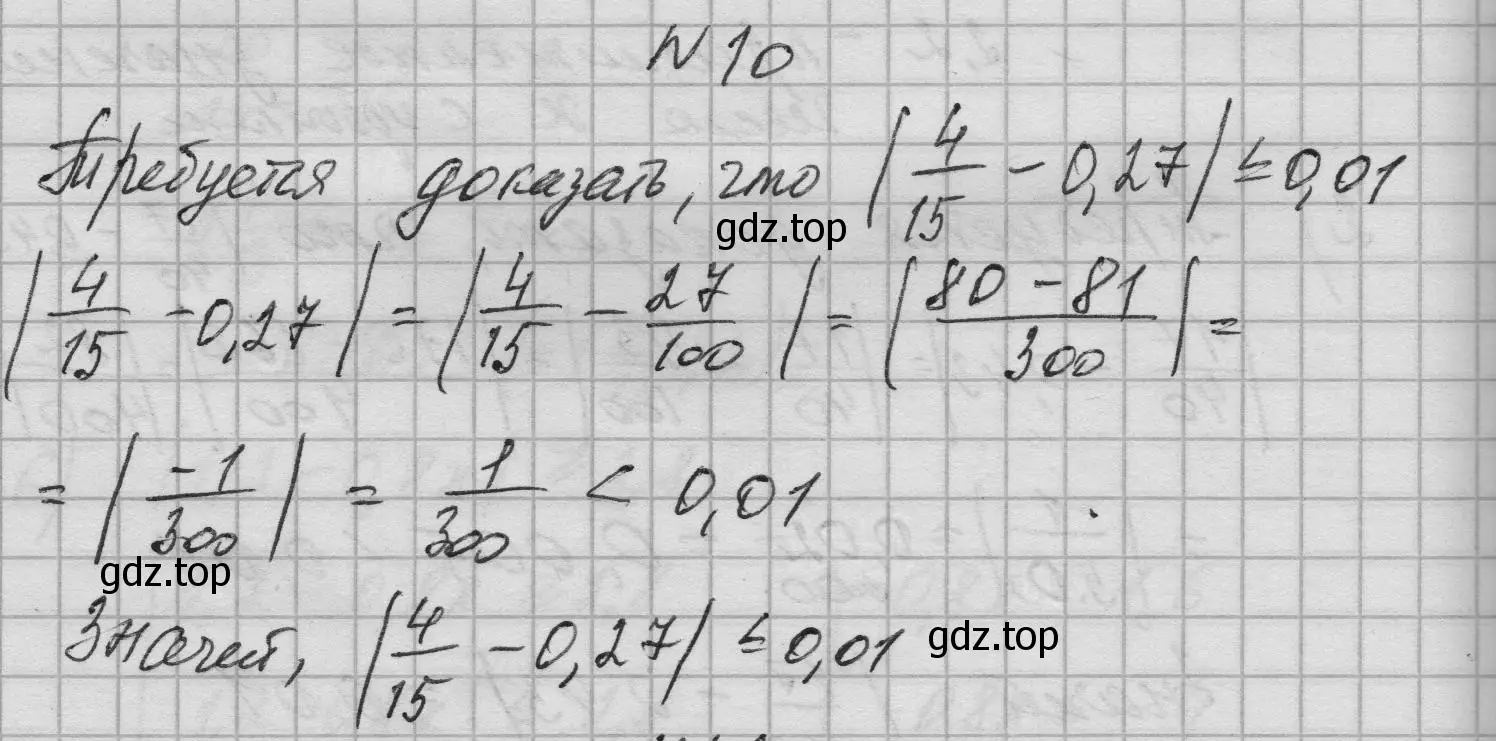 N 10
Требуется доказать, что |4/15 - 0,27| ≤ 0,01
gdz.top
|4/15 - 0,27| = |4/15 - 27/100| = |80 - 81/300| =
= |-1/300| = 1/300 < 0,01
gdz.top
Значит, |4/15 - 0,27| ≤ 0,01
gdz.top